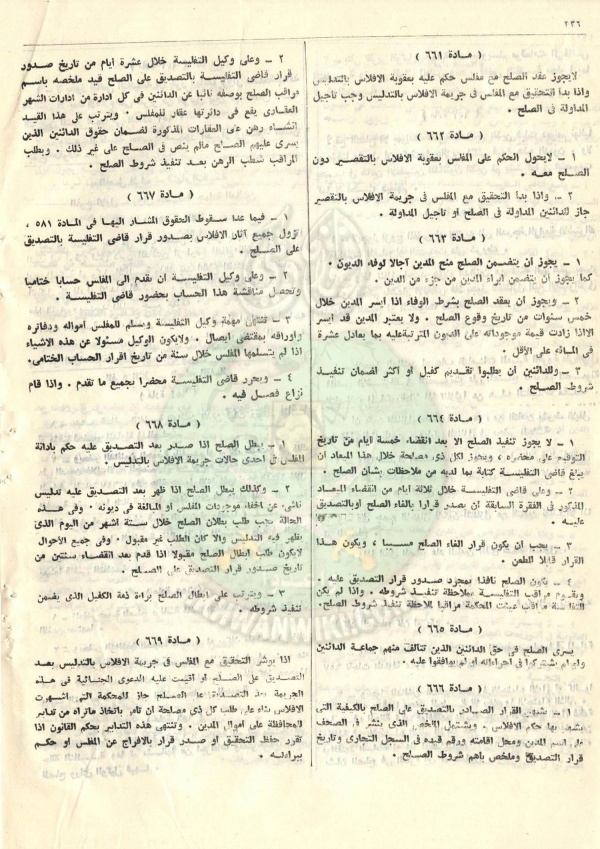 ٢٣٦
( مادة ٦٦١ )
لايجوز عقد الصلح مع مفلس حكم عليه بعقوبة الافلاس بالتدليس
واذا بدأ التحقيق مع المفلس في جريمة الافلاس بالتدليس وجب تأجيل
المداولة في الصلح .
( مادة ٦٦٢ )
١ - لايحول الحكم على المفلس بعقوبة الافلاس بالتقصير دون
الصلح معه .
٢ - واذا بدأ التحقيق مع المفلس في جريمة الافلاس بالتقصير
جاز للدائنين المداولة في الصلح او تأجيل المداولة .
( مادة ٦٦٣ )
١ - يجوز ان يتضمن الصلح منح المدين آجالا لوفاء الديون .
كما يجوز ان يتضمن ابراء المدين من جزء من الدين .
٢ - ويجوز ان يعقد الصلح بشرط الوفاء اذا ايسر المدين خلال
خمس سنوات من تاريخ وقوع الصلح . ولا يعتبر المدين قد ايسر
الااذا زادت قيمة موجوداته على الديون المترتبةعليه بما يعادل عشرة
في المائة على الأقل .
٣ - وللدائنين أن يطلبوا تقديم كفيل او أكثر لضمان تنفيذ
شروط الصلح .
( مادة ٦٦٤ )
١ - لا يجوز تنفيذ الصلح الا بعد انقضاء خمسة ايام من تاريخ
التوقيع على محضره ، ويجوز لكل ذي مصلحة خلال هذا الميعاد ان
يبلغ قاضي التفليسة كتابة بما لديه من ملاحظات بشأن الصلح .
٢ - وعلى قاضي التفليسة خلال ثلاثة أيام من انقضاء الميعاد
المذكور في الفقرة السابقة أن يصدر قرارا بالغاء الصلح أوبالتصديق
عليه .
٣ - يجب أن يكون قرار الغاء الصلح مسببا ، ويكون هذا
القرار قابلا للطعن .
٤ - يكون الصلح نافذا بمجرد صدور قرار التصديق عليه .
ويقوم مراقب التفليسة بملاحظة تنفيذ شروطه . واذا لم يكن
للتفليسة مراقب عينت المحكمة مراقبا لملاحظة تنفيذ شروط الصلح .
( مادة ٦٦٥ )
يسري الصلح في حق الدائنين الذين تتألف منهم جماعة الدائنين
ولو لم يشتركوا في اجراءاته او لم يوافقوا عليه .
( مادة ٦٦٦ )
١ - يشهر القرار الصادر بالتصديق على الصلح بالكيفية التي
يشهر بها حكم الافلاس . ويشتمل الملخص الذي ينشر في الصحف
على اسم المدين ومحل اقامته ورقم قيده في السجل التجاري وتاريخ
قرار التصديق وملخص بأهم شروط الصلح .
٢ - وعلى وكيل التفليسة خلال عشرة أيام من تاريخ صدور
قرار قاضي التفليسة بالتصديق على الصلح قيد ملخصه باسم
مراقب الصلح بوصفه نائبا عن الدائنين في كل ادارة من ادارات الشهر
العقاري يقع في دائرتها عقار للمفلس . ويترتب على هذا القيد
انشاء رهن على العقارات المذكورة لضمان حقوق الدائنين الذين
يسري عليهم الصلح مالم ينص في الصلح على غير ذلك . ويطلب
المراقب شطب الرهن بعد تنفيذ شروط الصلح .
( مادة ٦٦٧ )
١ - فيما عدا سقوط الحقوق المشار اليها في المادة ٥٨١ ،
تزول جميع آثار الافلاس بصدور قرار قاضي التفليسة بالتصديق
على الصلح .
٢ - وعلى وكيل التفليسة أن يقدم الى المفلس حسابا ختاميا
وتحصل مناقشة هذا الحساب بحضور قاضي التفليسة .
٣ - تنتهي مهمة وكيل التفليسة ويسلم للمفلس أمواله ودفاتره
وأوراقه بمقتضى ايصال . ولايكون الوكيل مسئولا عن هذه الاشياء
اذا لم يتسلمها المفلس خلال سنة من تاريخ اقرار الحساب الختامي.
٤ - ويحرر قاضي التفليسة محضرا بجميع ما تقدم . واذا قام
نزاع فصل فيه .
( مادة ٦٦٨ )
١ - يبطل الصلح اذا صدر بعد التصديق عليه حكم بادانة
المفلس في احدى حالات جريمة الافلاس بالتدليس .
٢ - وكذلك يبطل الصلح اذا ظهر بعد التصديق عليه تدليس
ناشئ عن اخفاء موجودات المفلس او المبالغة في ديونه . وفي هذه
الحالة يجب طلب بطلان الصلح خلال ستة اشهر من اليوم الذي
يظهر فيه التدليس والا كان الطلب غير مقبول . وفي جميع الأحوال
لايكون طلب ابطال الصلح مقبولا اذا قدم بعد انقضاء سنتين من
تاريخ صدور قرار التصديق على الصلح .
٣ - ويترتب على ابطال الصلح براءة ذمة الكفيل الذي يضمن
تنفيذ شروطه .
( مادة ٦٦٩ )
اذا بوشر التحقيق مع المفلس في جريمة الافلاس بالتدليس بعد
التصديق على الصلح او اقيمت عليه الدعوى الجنائية في هذه
الجريمة بعد التصديق على الصلح جاز للمحكمة التي اشهرت
الافلاس بناء على طلب كل ذي مصلحة ان تأمر باتخاذ ماتراه من تدابير
للمحافظة على اموال المدين . وتنتهي هذه التدابير بحكم القانون اذا
تقرر حفظ التحقيق او صدر قرار بالافراج عن المفلس او حكم
ببراءته .